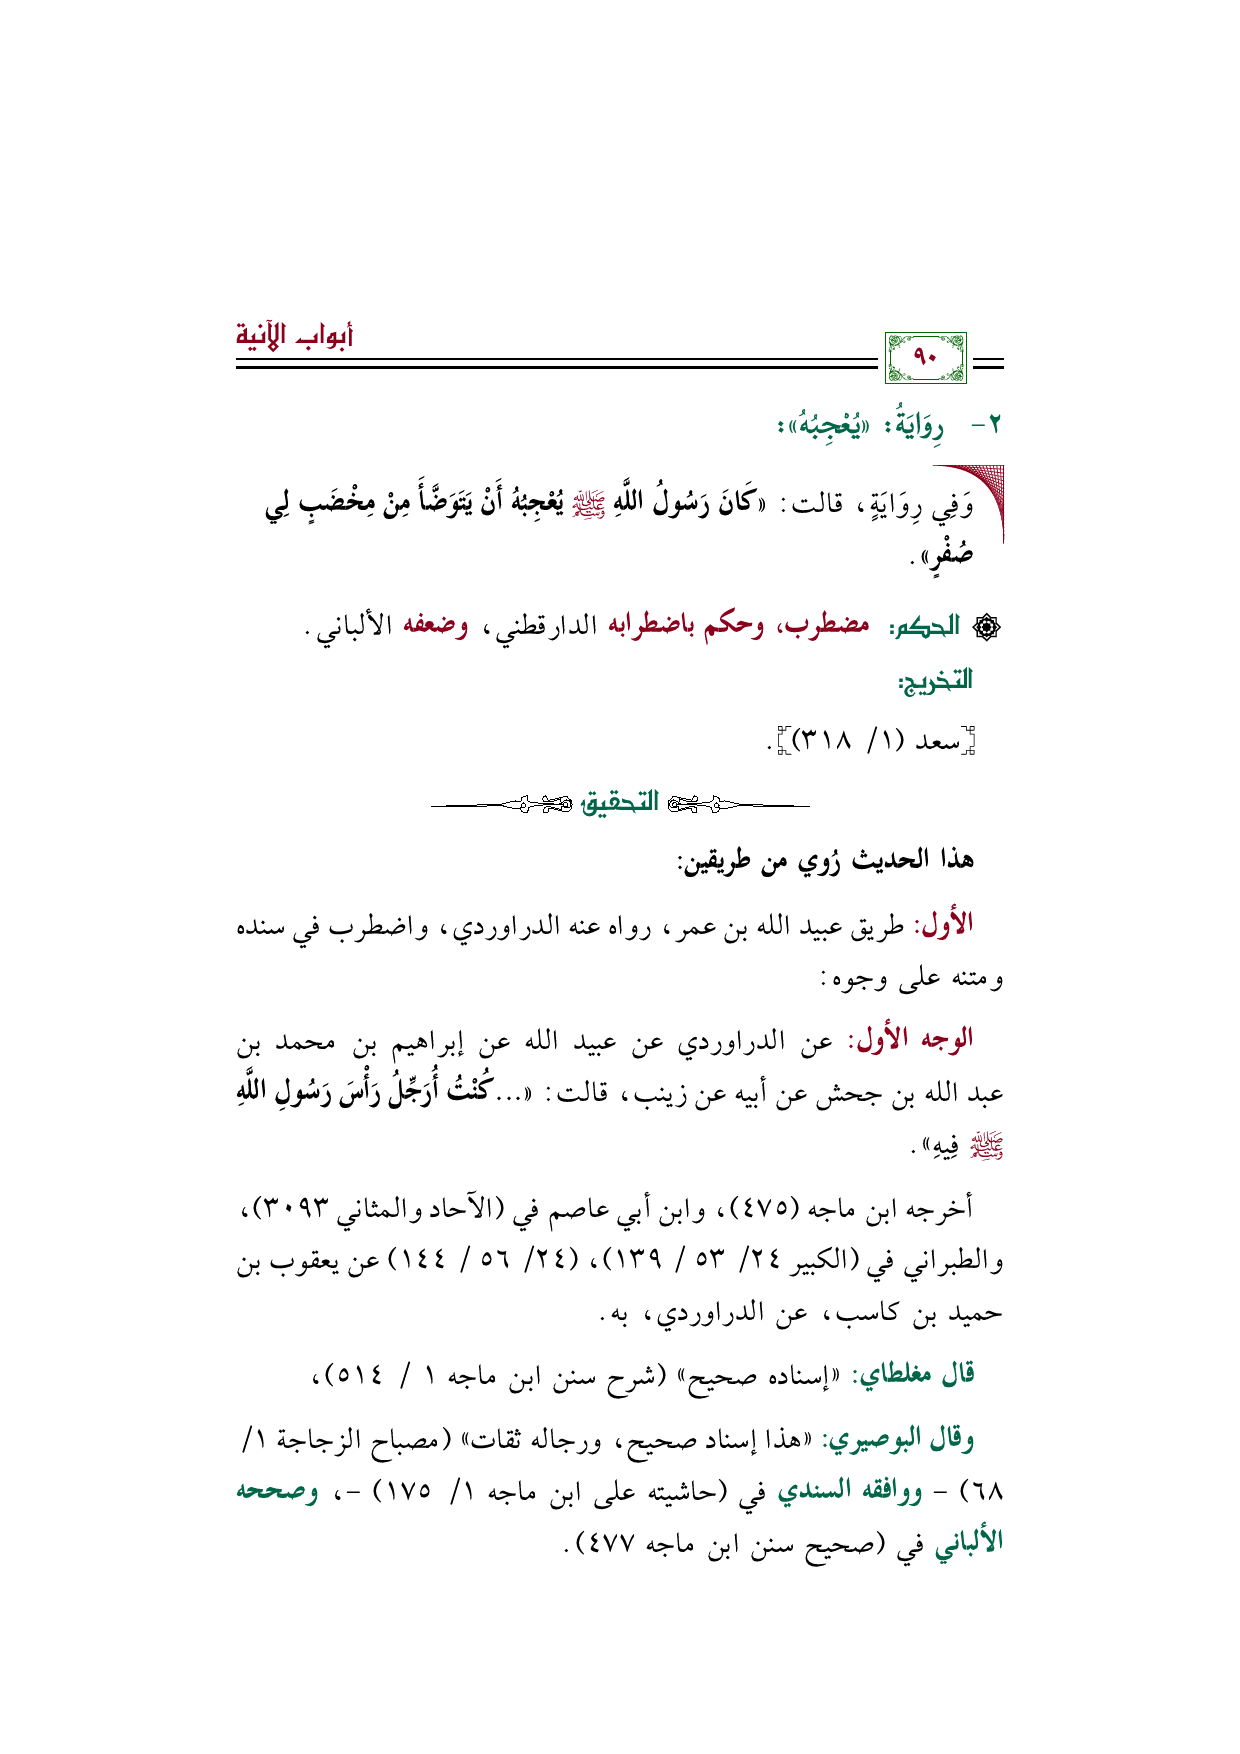 أبواب الآنية
٩٠
٢- رِوَايَةُ: «يُعْجِبُهُ»:
وَفِي رِوَايَةٍ، قالت: «كَانَ رَسُولُ اللَّهِ ﷺ يُعْجِبُهُ أَنْ يَتَوَضَّأَ مِنْ مِخْضَبٍ لِي
صُفْرٍ».
الحكم: مضطرب، وحكم باضطرابه الدارقطني، وضعفه الألباني.
التخريج:
[سعد (١/ ٣١٨)].
التحقيق
هذا الحديث رُوي من طريقين:
الأول: طريق عبيد الله بن عمر، رواه عنه الدراوردي، واضطرب في سنده
ومتنه على وجوه:
الوجه الأول: عن الدراوردي عن عبيد الله عن إبراهيم بن محمد بن
عبد الله بن جحش عن أبيه عن زينب، قالت: «...كُنْتُ أُرَجِّلُ رَأْسَ رَسُولِ اللَّهِ
ﷺ فِيهِ».
أخرجه ابن ماجه (٤٧٥)، وابن أبي عاصم في (الآحاد والمثاني ٣٠٩٣)،
والطبراني في (الكبير ٢٤/ ٥٣ / ١٣٩)، (٢٤/ ٥٦ / ١٤٤) عن يعقوب بن
حميد بن كاسب، عن الدراوردي، به.
قال مغلطاي: «إسناده صحيح» (شرح سنن ابن ماجه ١ / ٥١٤)،
وقال البوصيري: «هذا إسناد صحيح، ورجاله ثقات» (مصباح الزجاجة ١/
٦٨) - ووافقه السندي في (حاشيته على ابن ماجه ١/ ١٧٥) -، وصححه
الألباني في (صحيح سنن ابن ماجه ٤٧٧).